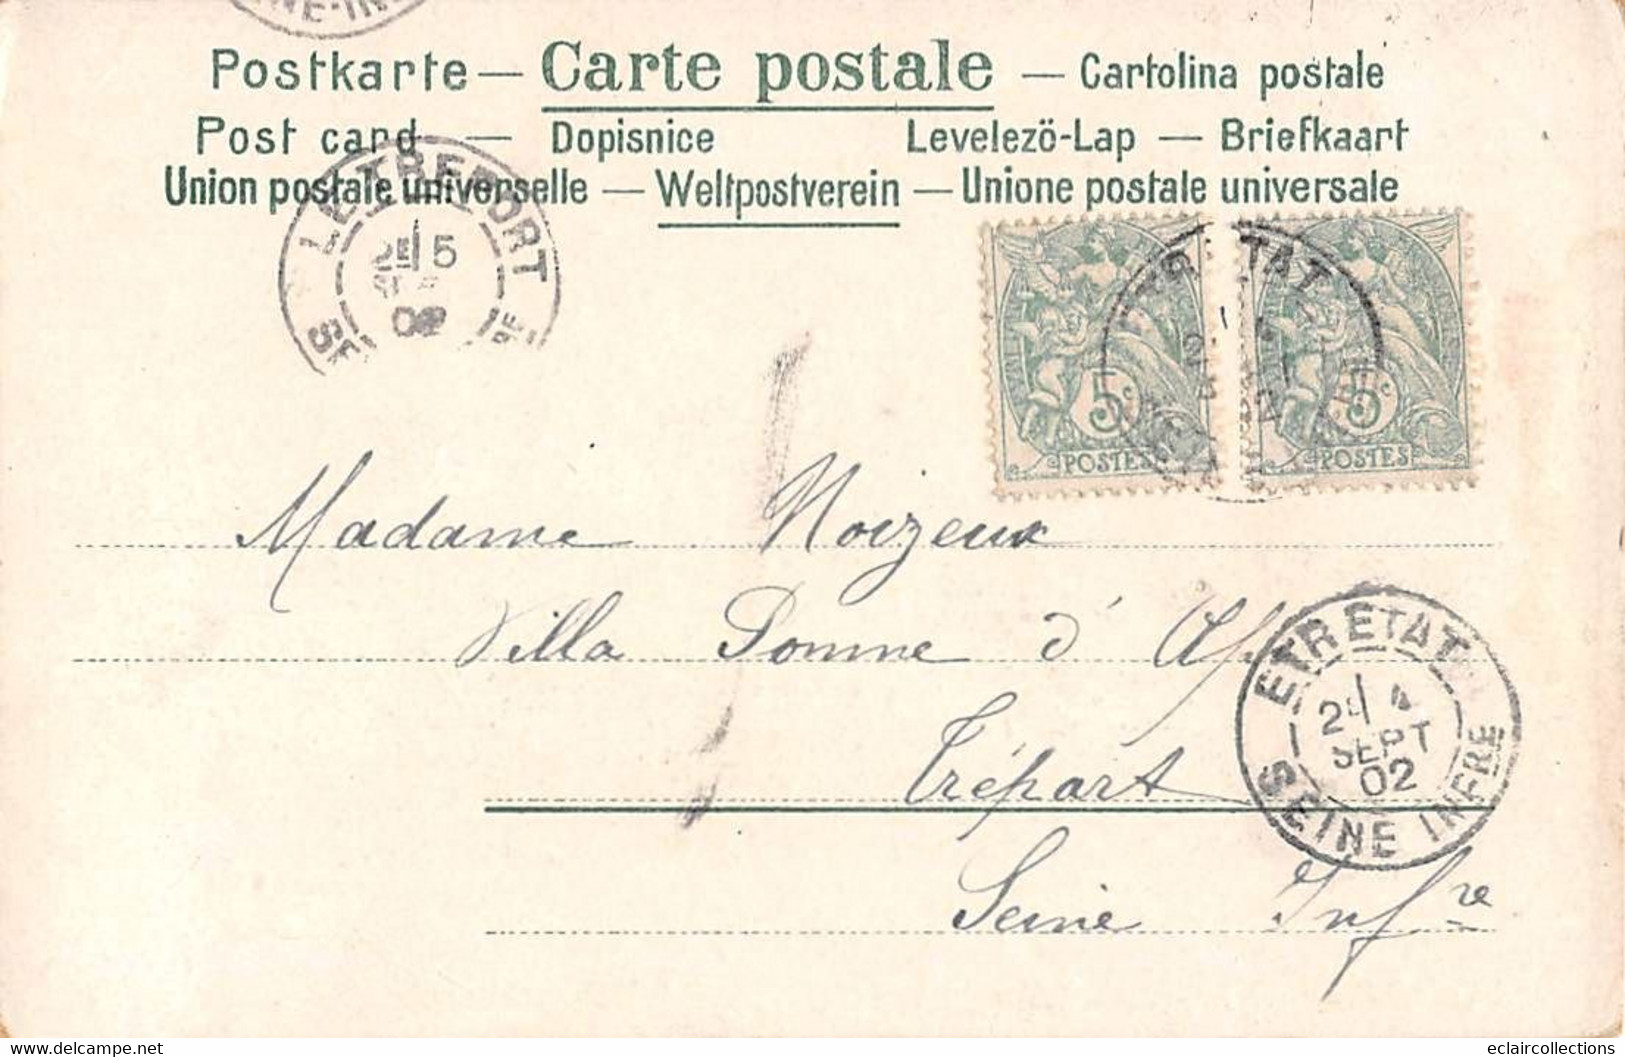 Postkarte — Carte postale — Cartolina postale
Post card — Dopisnice Levelezö-Lap — Briefkaart
Union postale universelle — Weltpostverein — Unione postale universale
LE TREPORT
2E 5
02
ETRETAT
5c
POSTES
5c
POSTES
Madame Noizeux
Villa Pomme d'
Tréport
Seine Infre
ETRETAT
2E 4
SEPT
02
SEINE INFRE
delcampe.net
eclaircollections